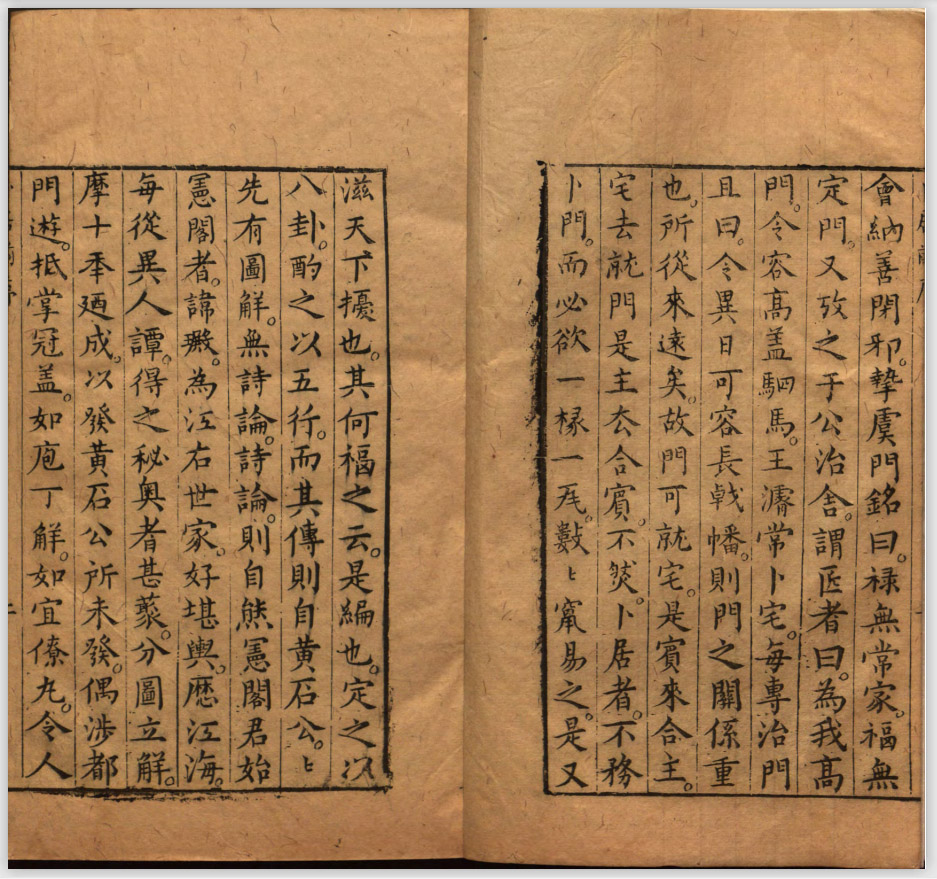 會納善閉邪。摯虞門銘曰。祿無常家。福無
定門。又攷之于公治舍。謂匠者曰。為我高
門。令容高盖駟馬。王濬常卜宅。每專治門
且曰。令異日可容長戟幡。則門之關係重
也。所從來遠矣。故門可就宅。是賓來合主。
宅去就門是主去合賓。不然。卜居者。不務
卜門。而必欲一椽一瓦。數〻竄易之。是又
滋天下擾也。其何福之云。是編也。定之以
八卦。酌之以五行。而其傳則自黃石公。〻
先有圖解。無詩論。詩論。則自熊憲閣君始
憲閣者。諱
為江右世家。好堪輿。歷江海。
每從異人譚。得之秘奥者甚蘩。分圖立解。
摩十年廼成。以發黃石公所未發。偶涉都
門遊。抵掌冠盖。如庖丁解。如宜僚丸。令人